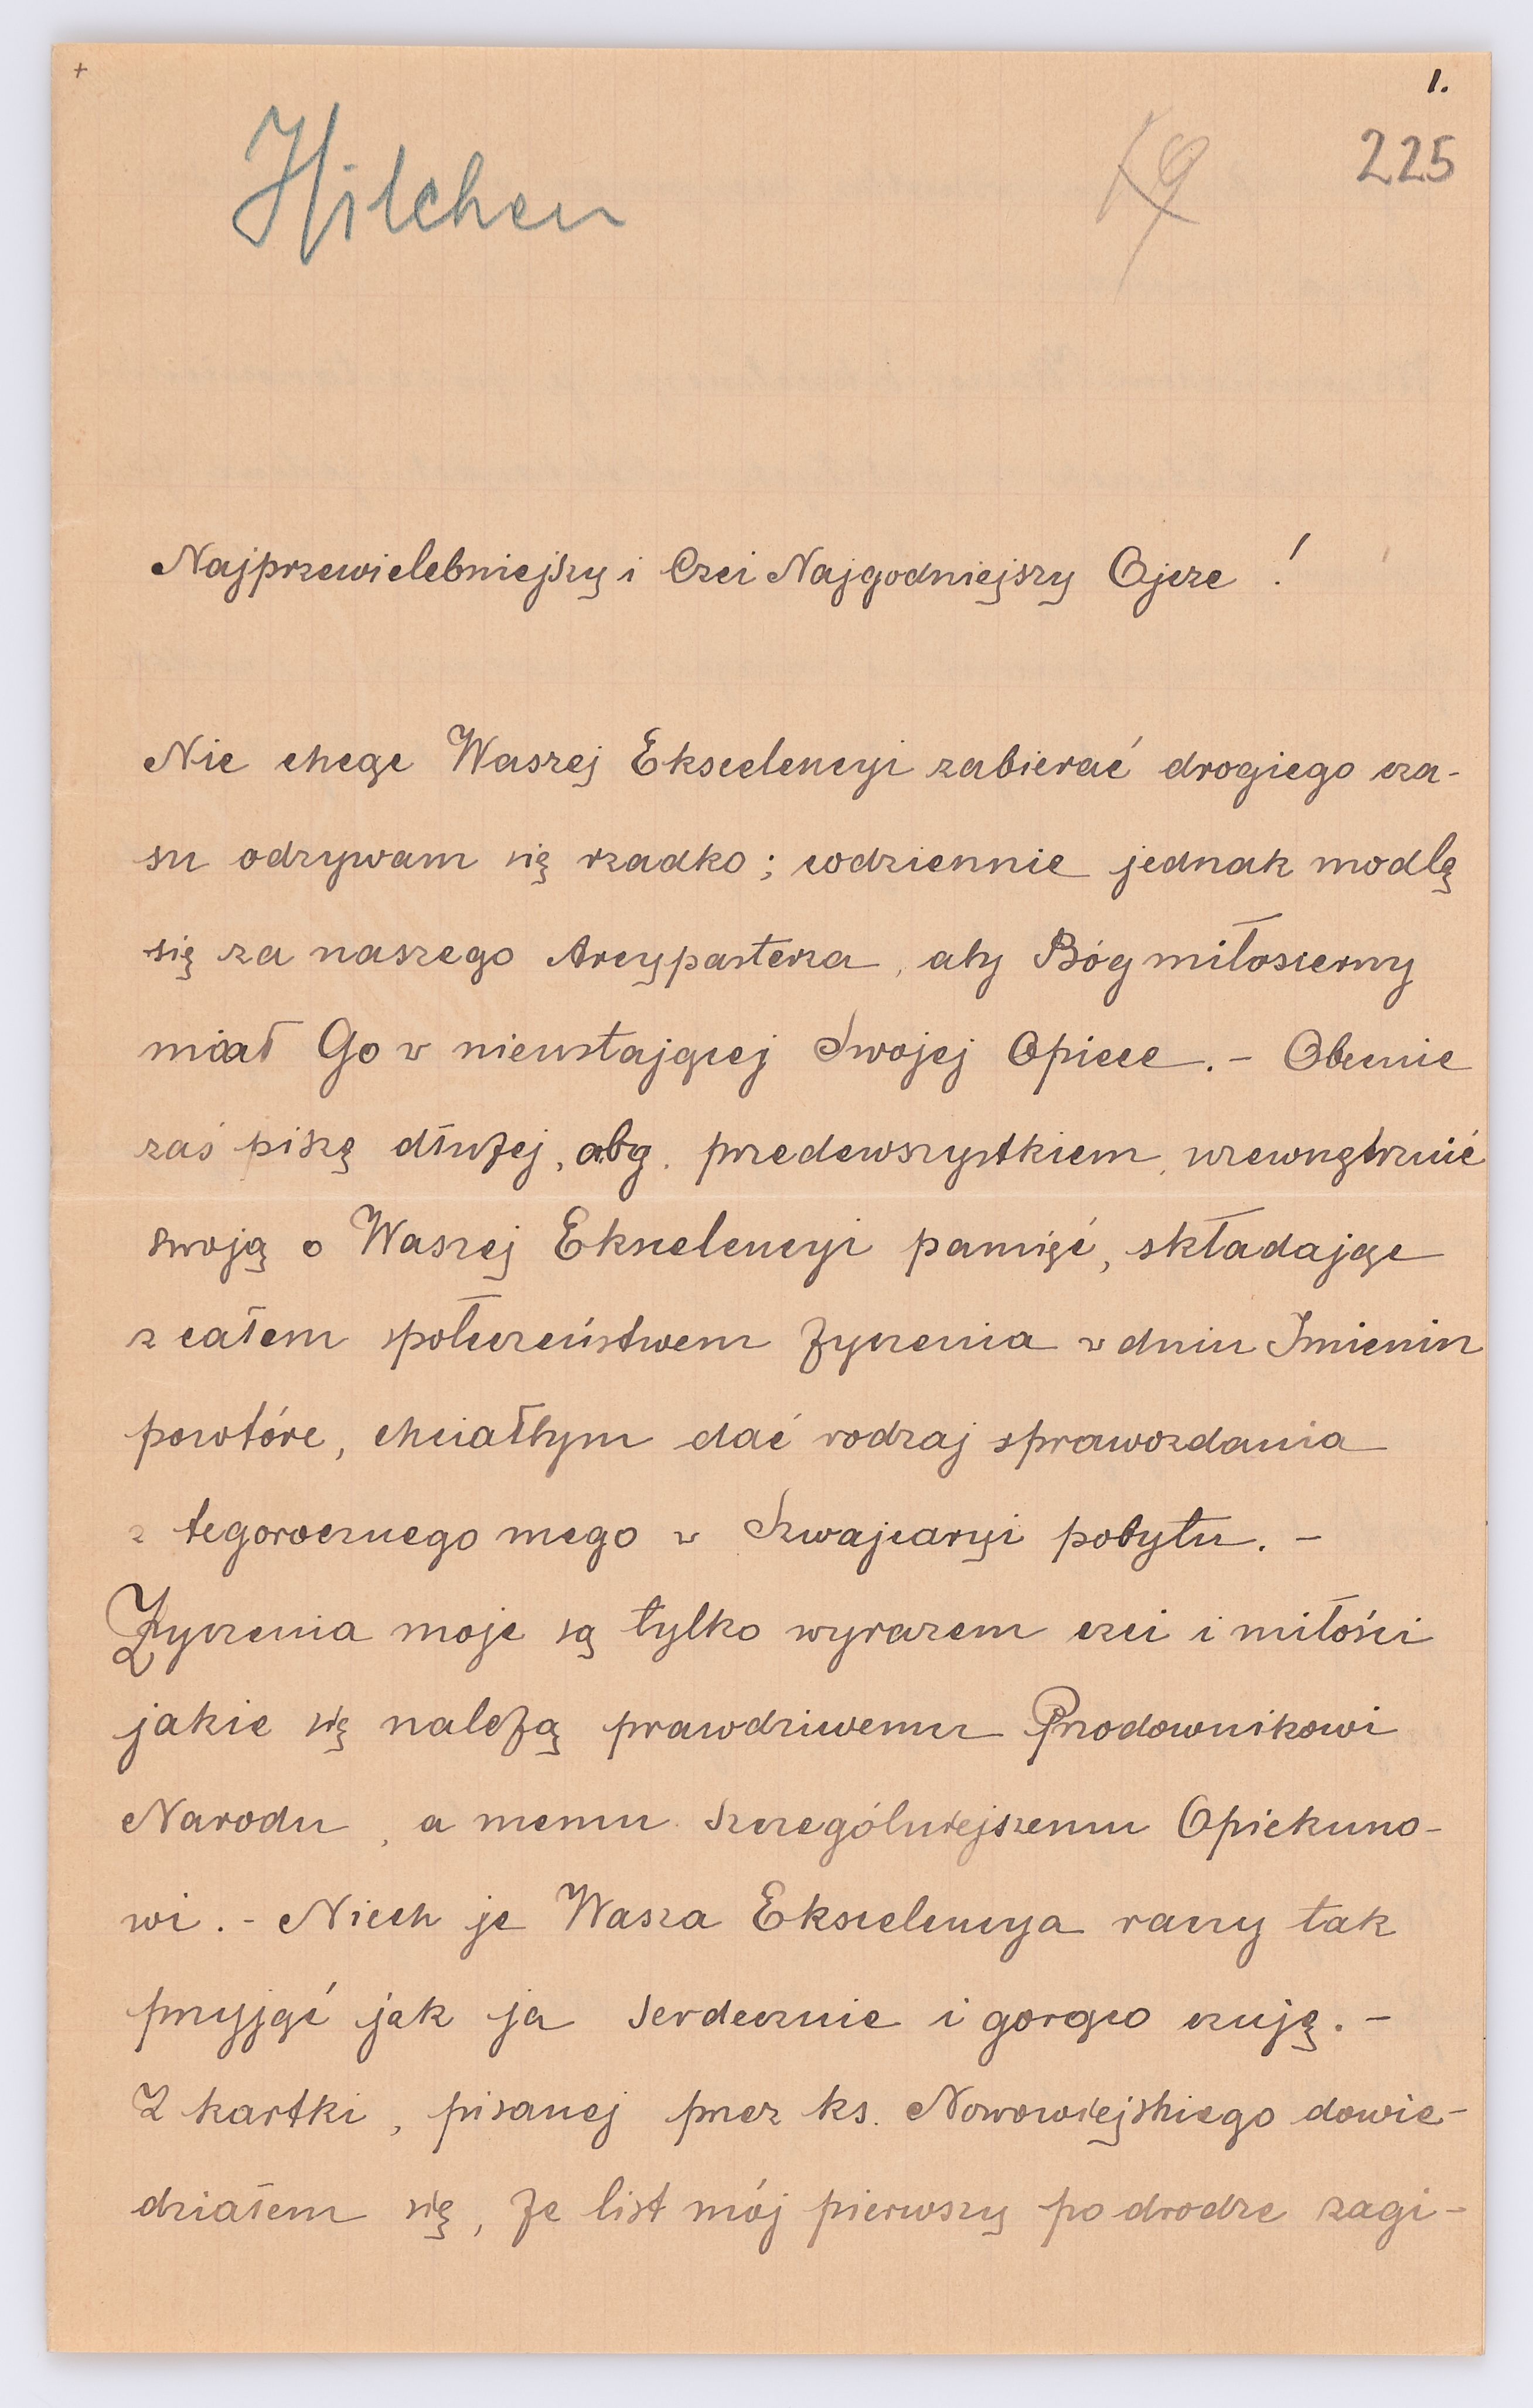 +
1.
Hilchen
225
Najprzewielebniejszy i Czci Najgodniejszy Ojcze !
Nie chcąc Waszej Ekscelencyi zabierać drogiego cza-
su odzywam się rzadko ; codziennie jednak modlę
się za naszego Arcypasterza, aby Bóg miłosierny
miał Go w nieustającej Swojej Opiece. – Obecnie
zaś piszę dłużej, aby, przedewszystkiem, uzewnętrznić
swoją o Waszej Ekscelencyi pamięć, składając
z całem społeczeństwem życzenia w dniu Imienin
powtóre, chciałbym dać rodzaj sprawozdania
z tegorocznego mego w Szwajcaryi pobytu. –
Życzenia moje są tylko wyrazem czci i miłości
jakie się należą prawdziwemu Przodownikowi
Narodu, a memu szczególniejszemu Opiekuno-
wi. – Niech je Wasza Ekscelencya raczy tak
przyjąć jak ja serdecznie i gorąco czuję. –
Z kartki, pisanej przez ks. Nowowiejskiego dowie-
działem się, że list mój pierwszy po drodze zagi-